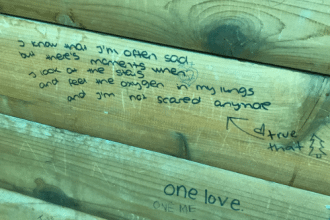 I know that I'm often sad,
but there's moments when
I look at the stars
and feel the oxygen in my lungs
and I'm not scared anymore
true
that
one love.
ONE ME